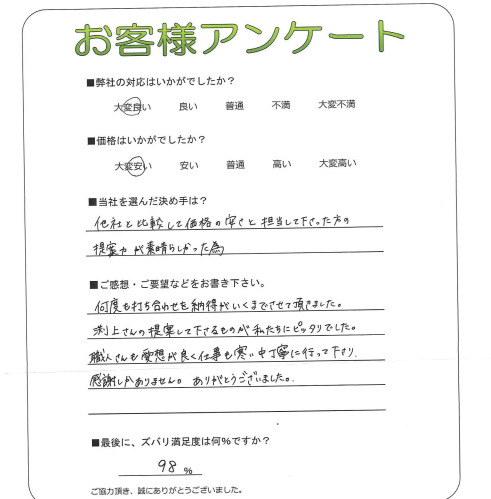 お客様アンケート
■弊社の対応はいかがでしたか？
大変良い 良い 普通 不満 大変不満
■価格はいかがでしたか？
大変安い 安い 普通 高い 大変高い
■当社を選んだ決め手は？
他社と比較して価格の安さと担当して下さった方の
提案力が素晴らしかった為
■ご感想・ご要望などをお書き下さい。
何度も打ち合わせを納得がいくまでさせて頂きました。
渕上さんの提案して下さるものが私たちにピッタリでした。
職人さんも愛想が良く仕事も寒い中丁寧に行って下さり、
感謝しかありません。ありがとうございました。
■最後に、ズバリ満足度は何%ですか？
98 %
ご協力頂き、誠にありがとうございました。